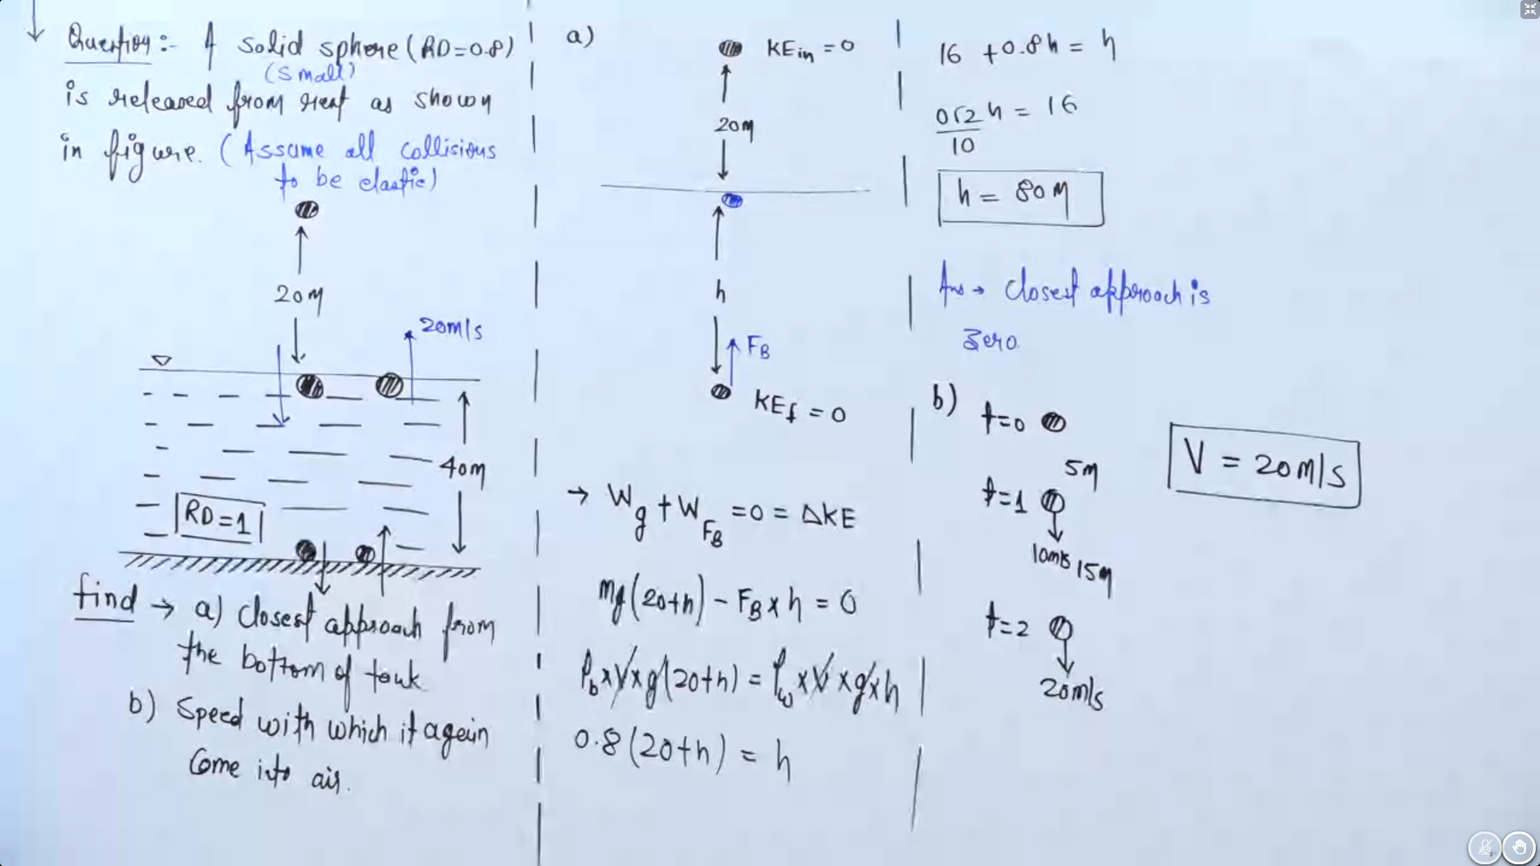 Question:- A solid sphere (RD=0.8)
(small)
is released from rest as shown
in figure. (Assume all collisions
to be elastic)
20m
20m/s
40m
RD=1
find → a) Closest approach from
the bottom of tank
b) Speed with which it again
Come into air.
a)
KEin = 0
20m
h
FB
KEf = 0
→ Wg + WFB = 0 = ΔKE
mg(20+h) - FB x h = 0
ρb x V x g(20+h) = ρw x V x g x h
0.8(20+h) = h
16 + 0.8h = h
0.2 h = 16
10
h = 80m
Ans → Closest approach is
Zero
b)
t=0
5m
t=1
10m/s 15m
t=2
20m/s
V = 20m/s